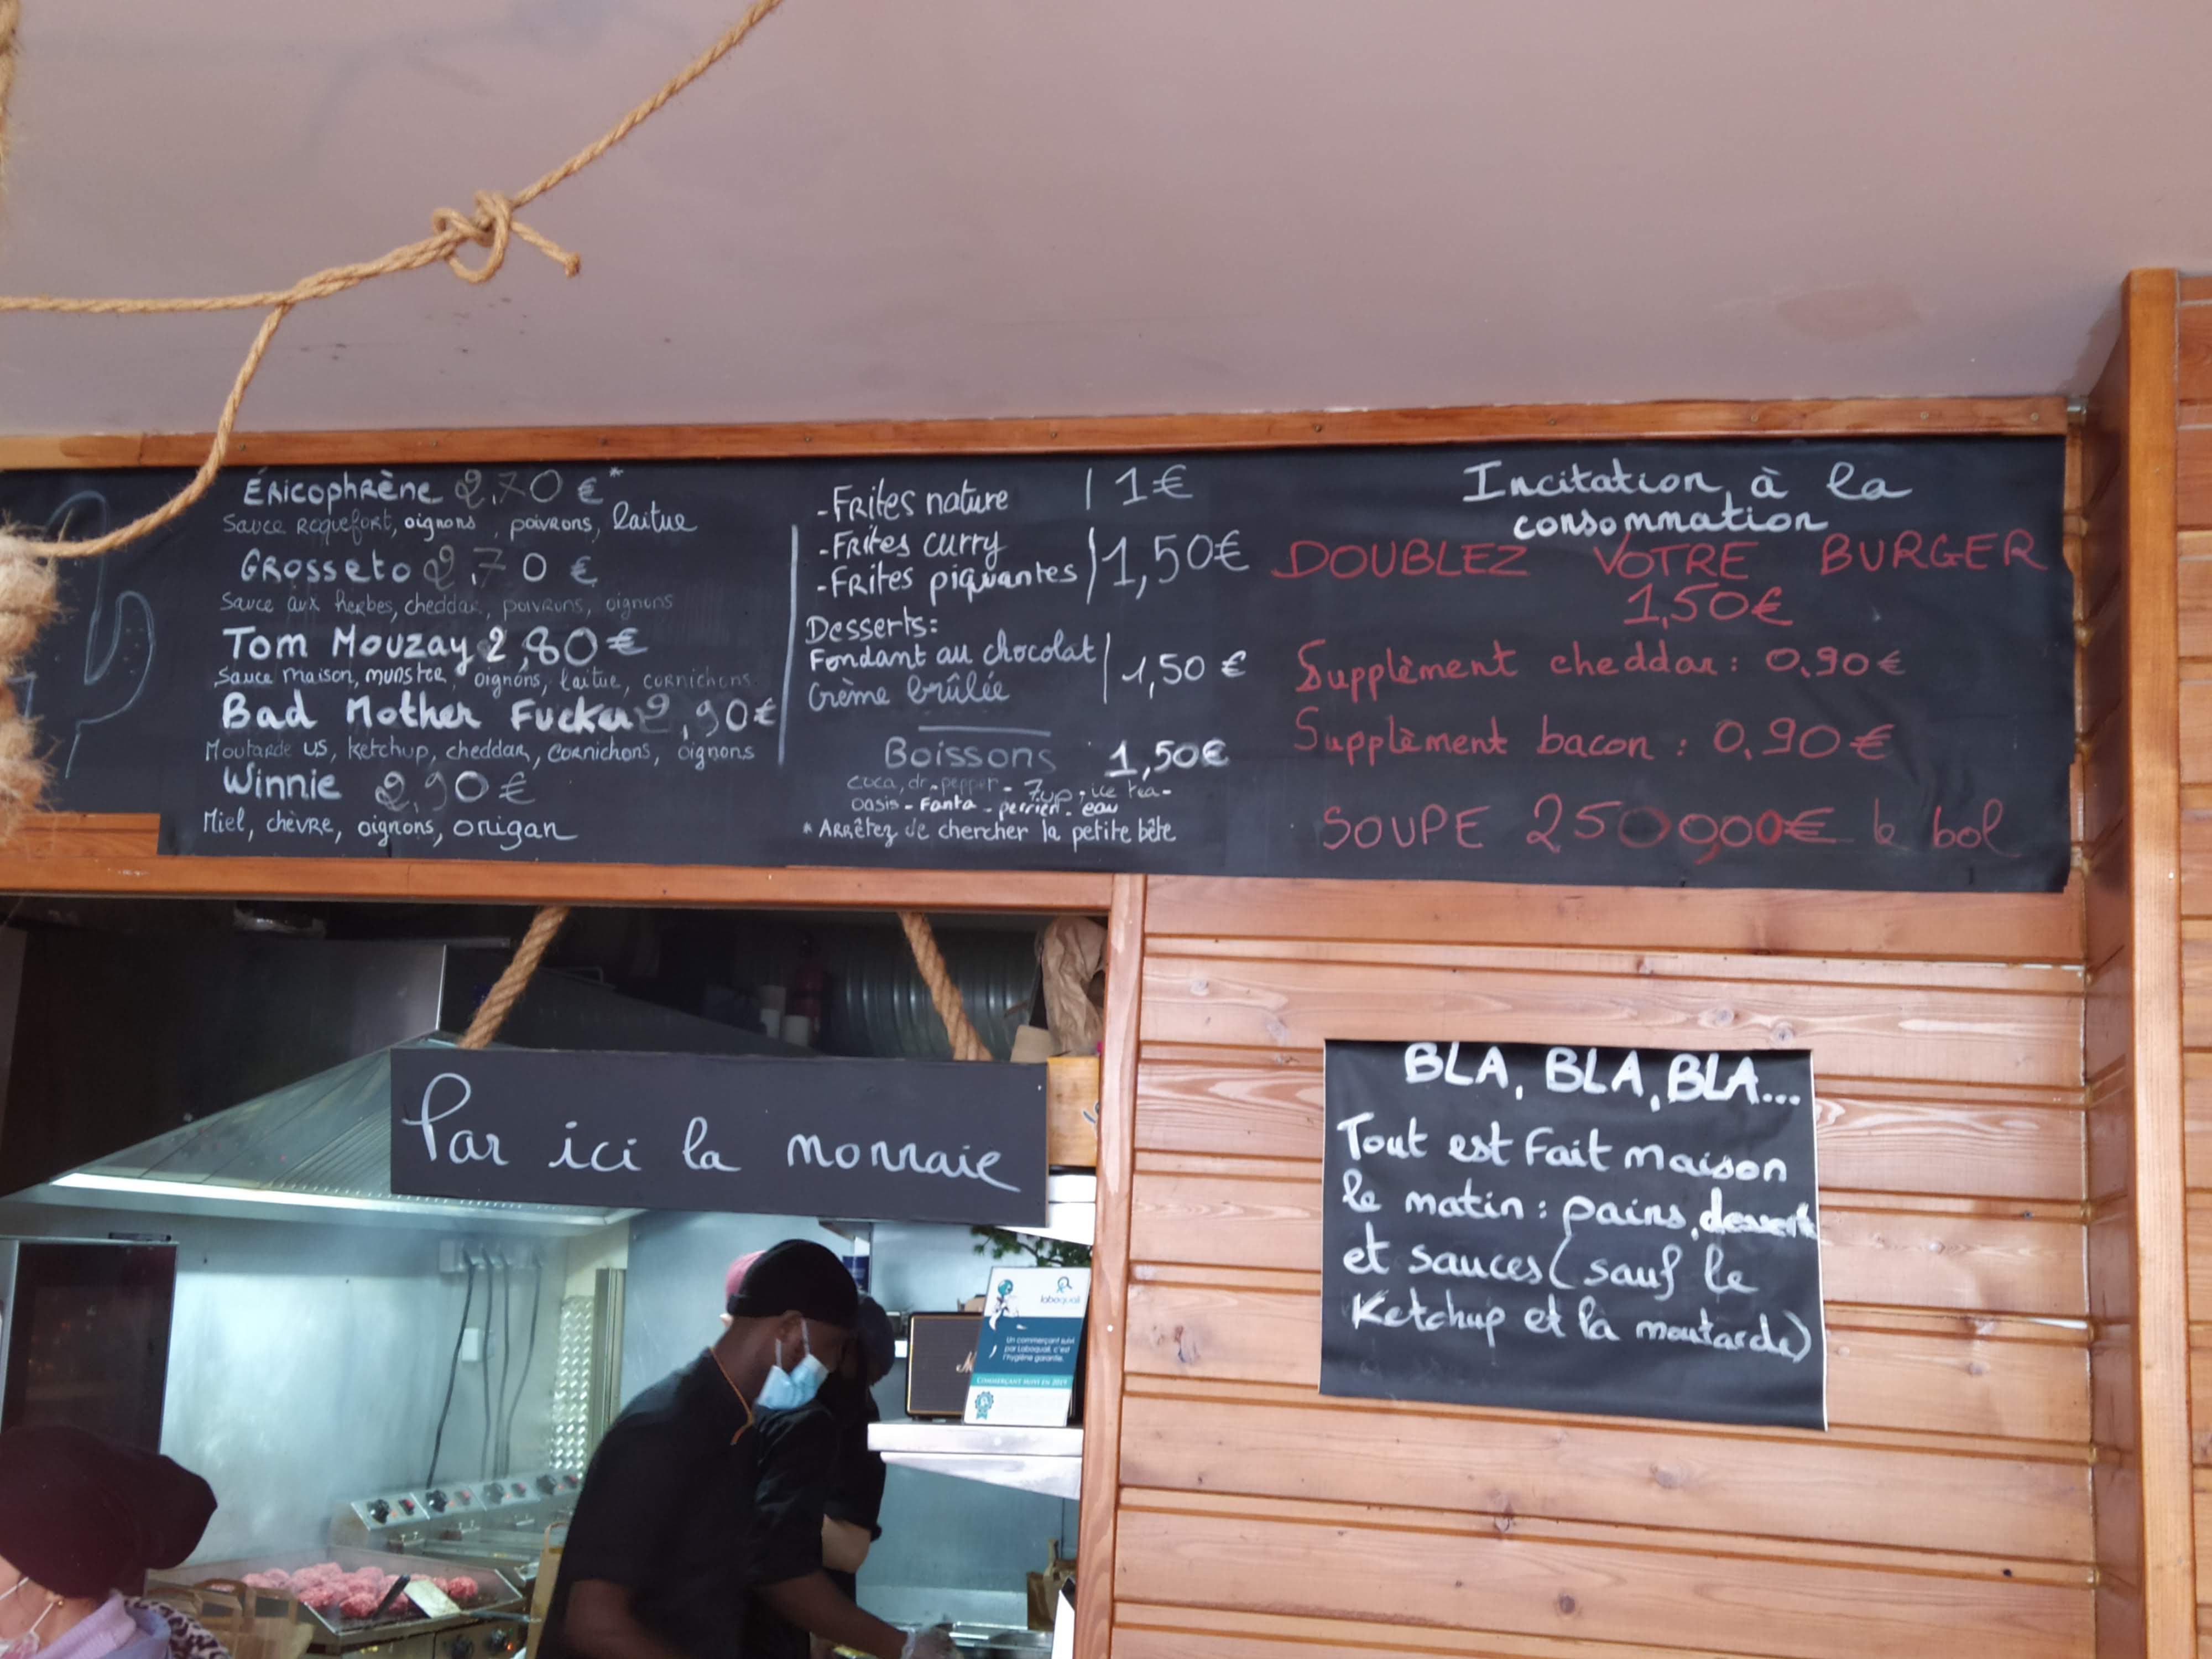 Éricophrène 2,70 €*
Sauce Roquefort, oignons, poivrons, laitue
Grosseto 2,70 €
Sauce aux herbes, cheddar, poivrons, oignons
Tom Mouzay 2,80 €
Sauce maison, munster, oignons, laitue, cornichons
Bad Mother Fucker 2,90€
Moutarde US, ketchup, cheddar, cornichons, oignons
Winnie 2,90 €
Miel, chèvre, oignons, origan
-Frites nature | 1€
-Frites curry
-Frites piquantes | 1,50€
Desserts:
Fondant au chocolat
Crème brûlée | 1,50 €
Boissons 1,50€
coca, dr-pepper - 7up - ice tea -
oasis - Fanta - perrier - eau
* Arrêtez de chercher la petite bête
Incitation à la
consommation
DOUBLEZ VOTRE BURGER
1,50€
Supplèment cheddar : 0.90€
Supplèment bacon : 0.90€
SOUPE 250 900€ le bol
Par ici la monnaie
BLA, BLA, BLA...
Tout est Fait maison
le matin : pains, desserts
et sauces (sauf le
Ketchup et la moutarde)
laboquali
Un commerçant suivi
par Laboquali, c'est
l'hygiène garantie.
COMMERÇANT SUIVI EN 2021